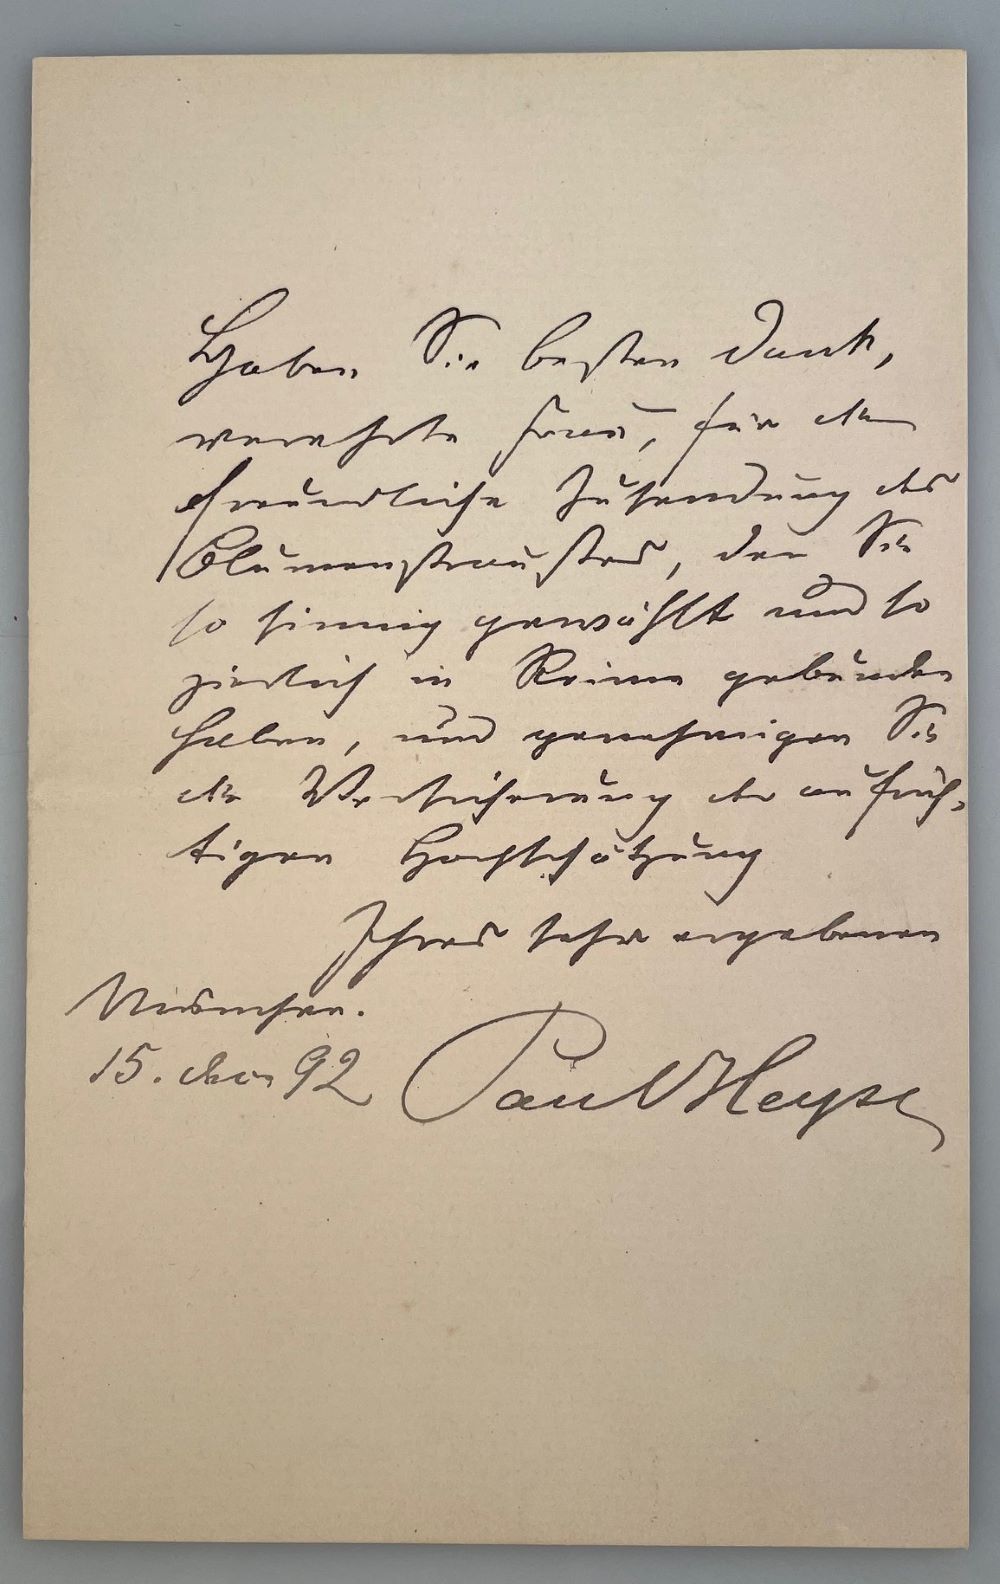 Haben Sie besten Dank,
verehrte Frau, für die
freundliche Zusendung des
Blumenstraußes, den Sie
so sinnig gewählt und so
zierlich in Reime gebunden
haben, und genehmigen Sie
die Versicherung der aufrich-
tigen Hochschätzung
Ihres sehr ergebenen
München.
15. Dec 92 Paul Heyse